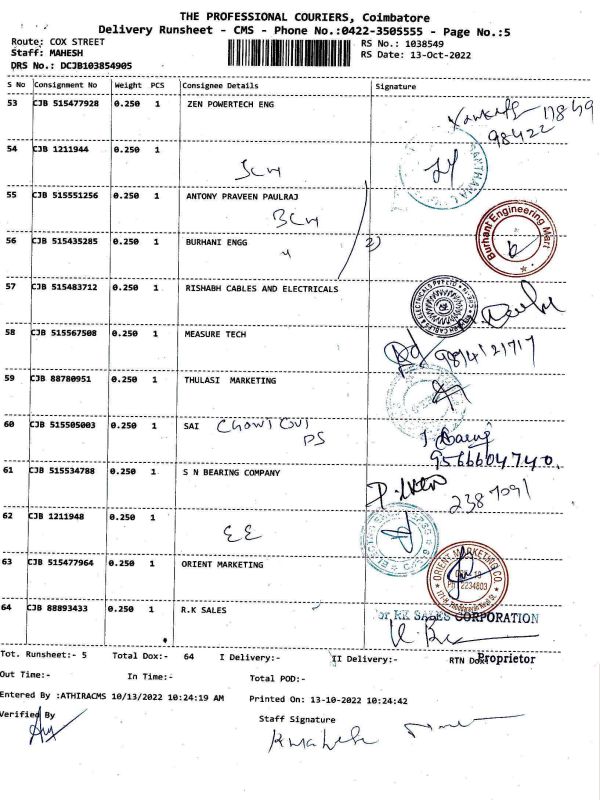 THE PROFESSIONAL COURIERS, Coimbatore
Delivery Runsheet - CMS - Phone No.:0422-3505555 - Page No.:5
Route: COX STREET
RS No.: 1038549
Staff: MAHESH
RS Date: 13-Oct-2022
DRS No.: DCJB103854905
S No Consignment No Weight PCS Consignee Details Signature
53 CJB 515477928 0.250 1 ZEN POWERTECH ENG
98422
54 CJB 1211944 0.250 1
55 CJB 515551256 0.250 1 ANTONY PRAVEEN PAULRAJ
56 CJB 515435285 0.250 1 BURHANI ENGG
Burhani Engineering Mart
57 CJB 515483712 0.250 1 RISHABH CABLES AND ELECTRICALS
58 CJB 515567508 0.250 1 MEASURE TECH
59 CJB 88780951 0.250 1 THULASI MARKETING
60 CJB 515505003 0.250 1 SAI
PS
9566604740.
61 CJB 515534788 0.250 1 S N BEARING COMPANY
2387091
62 CJB 1211948 0.250 1
EE
63 CJB 515477964 0.250 1 ORIENT MARKETING
ORIENT MARKETING CO
PH: 2234803
64 CJB 88893433 0.250 1 R.K SALES
For RK SALES CORPORATION
Proprietor
Tot. Runsheet:- 5 Total Dox:- 64 I Delivery:- II Delivery:- RTN Dox:
Out Time:- In Time:- Total POD:-
Entered By :ATHIRACMS 10/13/2022 10:24:19 AM Printed On: 13-10-2022 10:24:42
Verified By
Staff Signature